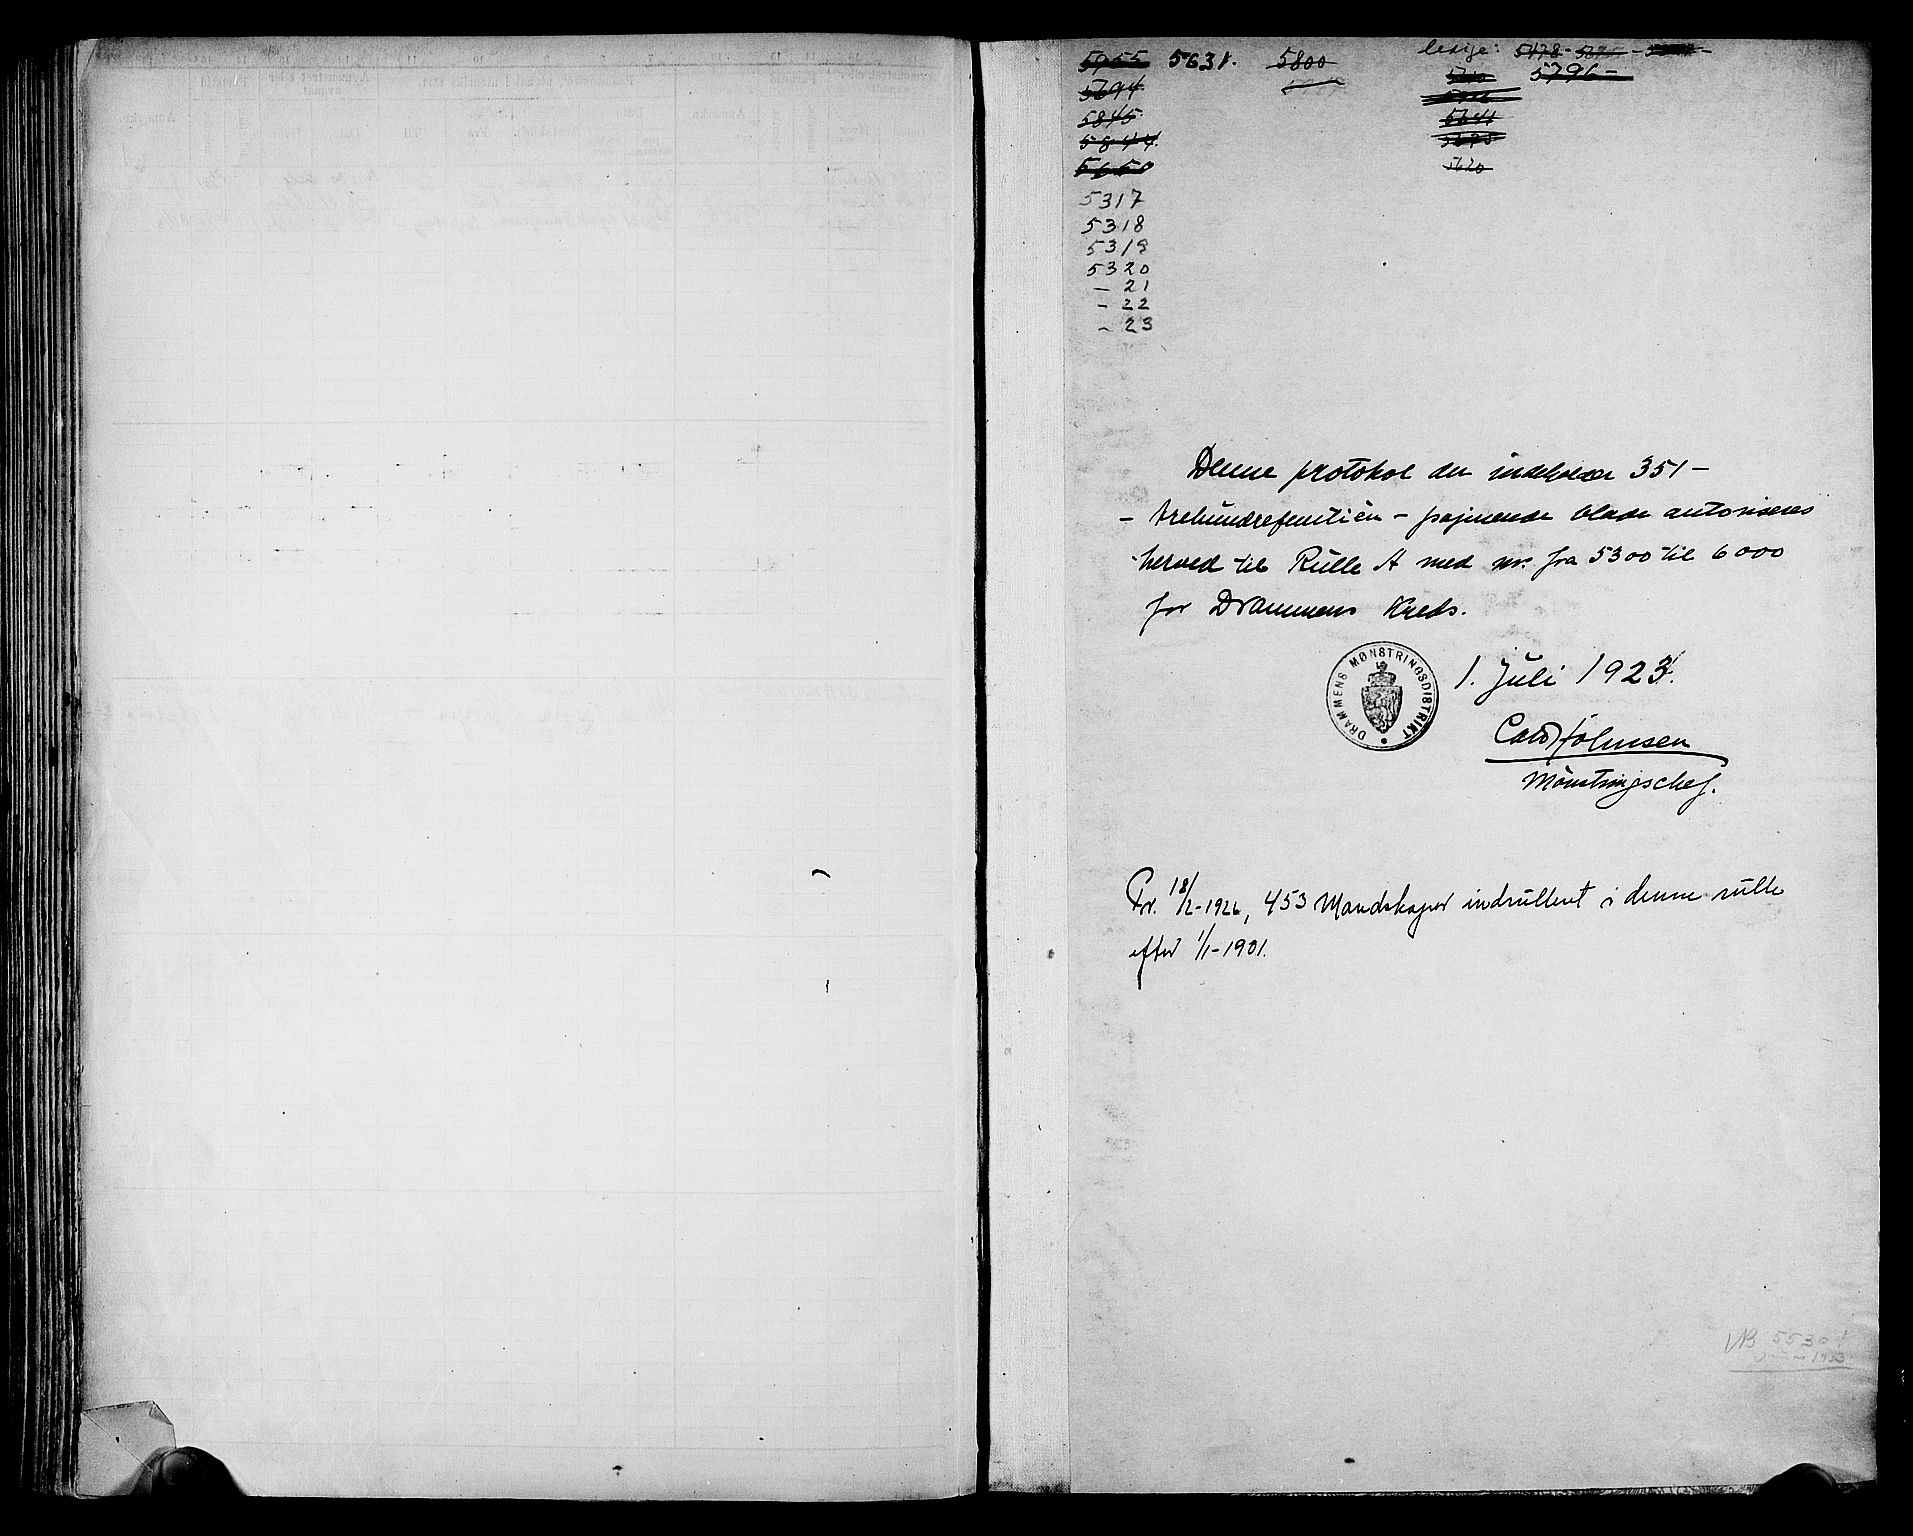 5955 5631. 5800 ledige: 5478 -
5694 5796 -
5845
5844
5650 5620
5317
5318
5319
5320
- 21
- 22
- 23
Denne protokol der indeholder 351 -
- trehundrefemtién - paginerede blade autoriseres
herved til Rulle A med nr. fra 5300 til 6000
for Drammens Kreds.
DRAMMENS MØNSTRINGSDISTRIKT
1. Juli 1923.
Carl Johnsen
Mönstringschef.
Pr. 18/2-1926, 453 Mandskaper indrullert i denne rulle
efter 1/1-1901.
NB 5530!
1933